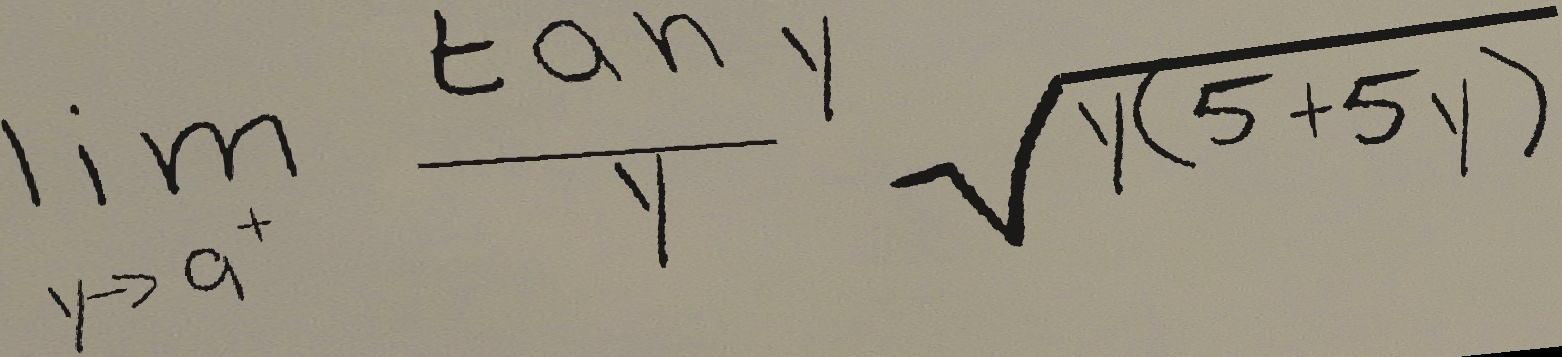 lim_{y \to a^+} \frac{tan y}{y} \sqrt{y(5+5y)}